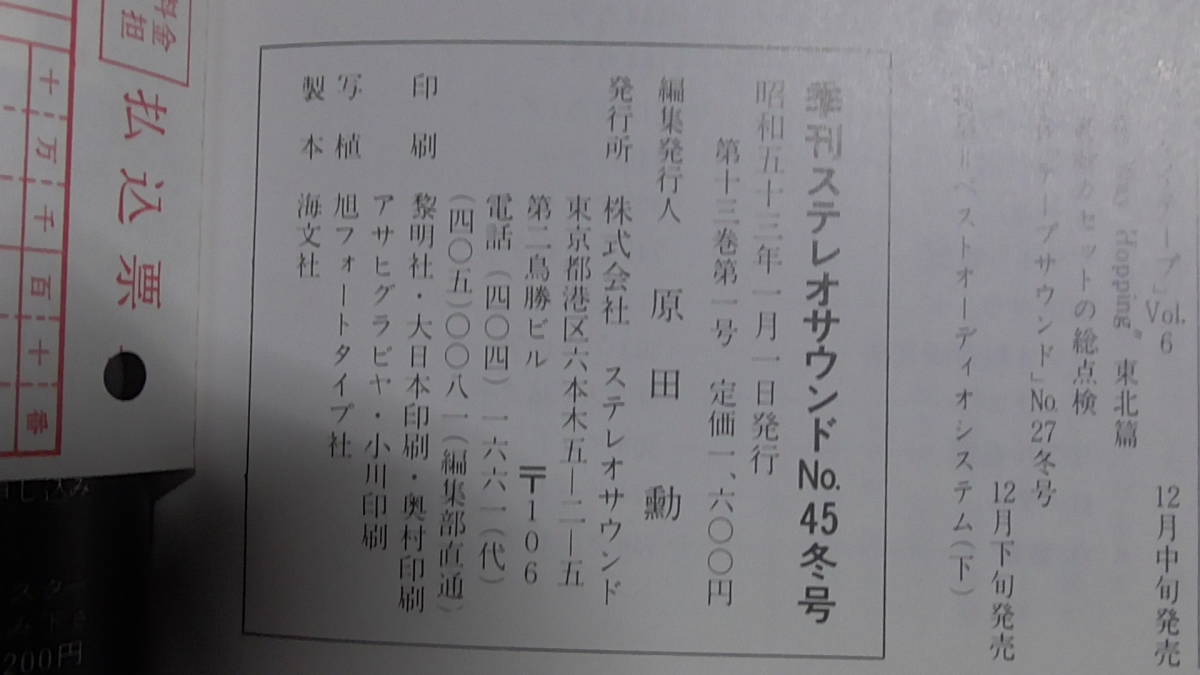 テープ」Vol.6 12月中旬発売
Hopping〟東北篇
カセットの総点検
テープサウンド」No.27冬号
12月下旬発売
=ベストオーディオシステム(下)
季刊ステレオサウンドNo.45冬号
昭和五十三年一月一日発行
第十三巻第一号 定価一、六〇〇円
編集発行人 原田 勲
発行所 株式会社 ステレオサウンド
東京都港区六本木五―二―五
第二鳥勝ビル 〒106
電話(四〇四)一六六一(代)
(四〇五)〇〇八一(編集部直通)
印刷 黎明社・大日本印刷・奥村印刷
アサヒグラビヤ・小川印刷
写植 旭フォートタイプ社
製本 海文社
料金
担
払込票
十万千百十番
200円